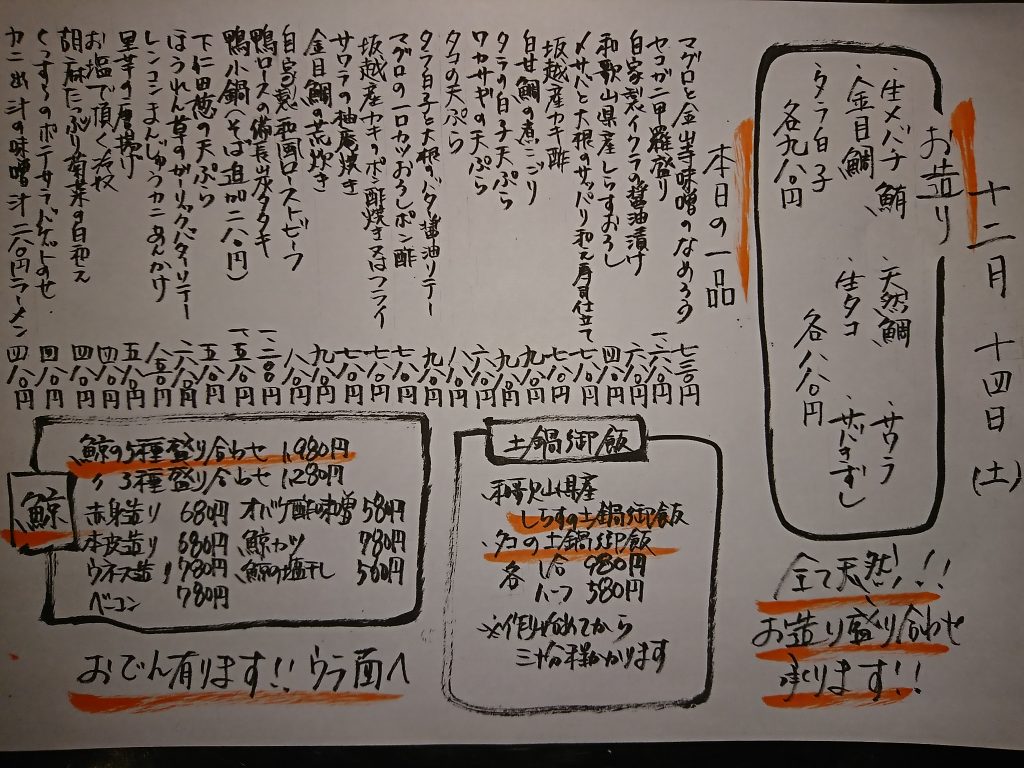 十二月十四日(土)
お造り
生メバチ鮪 天然鯛 サワラ
金目鯛 生タコ サバのすし
タラ白子 各八八〇円
各九八〇円
全て天然!!
お造り盛り合わせ
承ります!!
本日の一品
マグロと金山寺味噌のなめろう 七三〇円
セコガニ甲羅盛り 一、六八〇円
自家製イクラの醤油漬け 六八〇円
和歌山県産しらすおろし 四八〇円
〆サバと大根のサッパリ和え寿司仕立て 七八〇円
坂越産カキ酢 七八〇円
白甘鯛の煮こごり 九八〇円
タラの白子天ぷら 九八〇円
ワカサギの天ぷら 六八〇円
タコの天ぷら 八八〇円
タラ白子と大根のバター醤油ソテー 九八〇円
マグロの一口カツおろしポン酢 七八〇円
坂越産カキのポン酢焼き又はフライ 七八〇円
サワラの柚庵焼き 七八〇円
金目鯛の荒炊き 九八〇円
自家製和風ローストビーフ 八八〇円
鴨ロースの備長炭タタキ 一、二〇〇円
鴨小鍋(そば追加二八〇円) 一、五八〇円
下仁田葱の天ぷら 五八〇円
ほうれん草のガーリックバターソテー 六八〇円
レンコンまんじゅうカニあんかけ 八五〇円
里芋の唐揚げ 五八〇円
お塩で頂く冷奴 四八〇円
胡麻たっぷり菊菜の白和え 四八〇円
くんすものポテサラバゲットのせ 四八〇円
カニ出汁の味噌汁二八〇円ラーメン 四八〇円
土鍋御飯
和歌山県産
しらすの土鍋御飯
タコの土鍋御飯
各 1合 980円
ハーフ 580円
※作り始めてから
三十分程かかります
鯨
鯨の5種盛り合わせ 1,980円
〃 3種盛り合わせ 1,280円
赤身造り 680円 オバケ酢味噌 580円
本皮造り 680円 鯨カツ 780円
ウネス造り 780円 鯨の塩干し 560円
ベーコン 780円
おでん有ります!!ウラ面へ